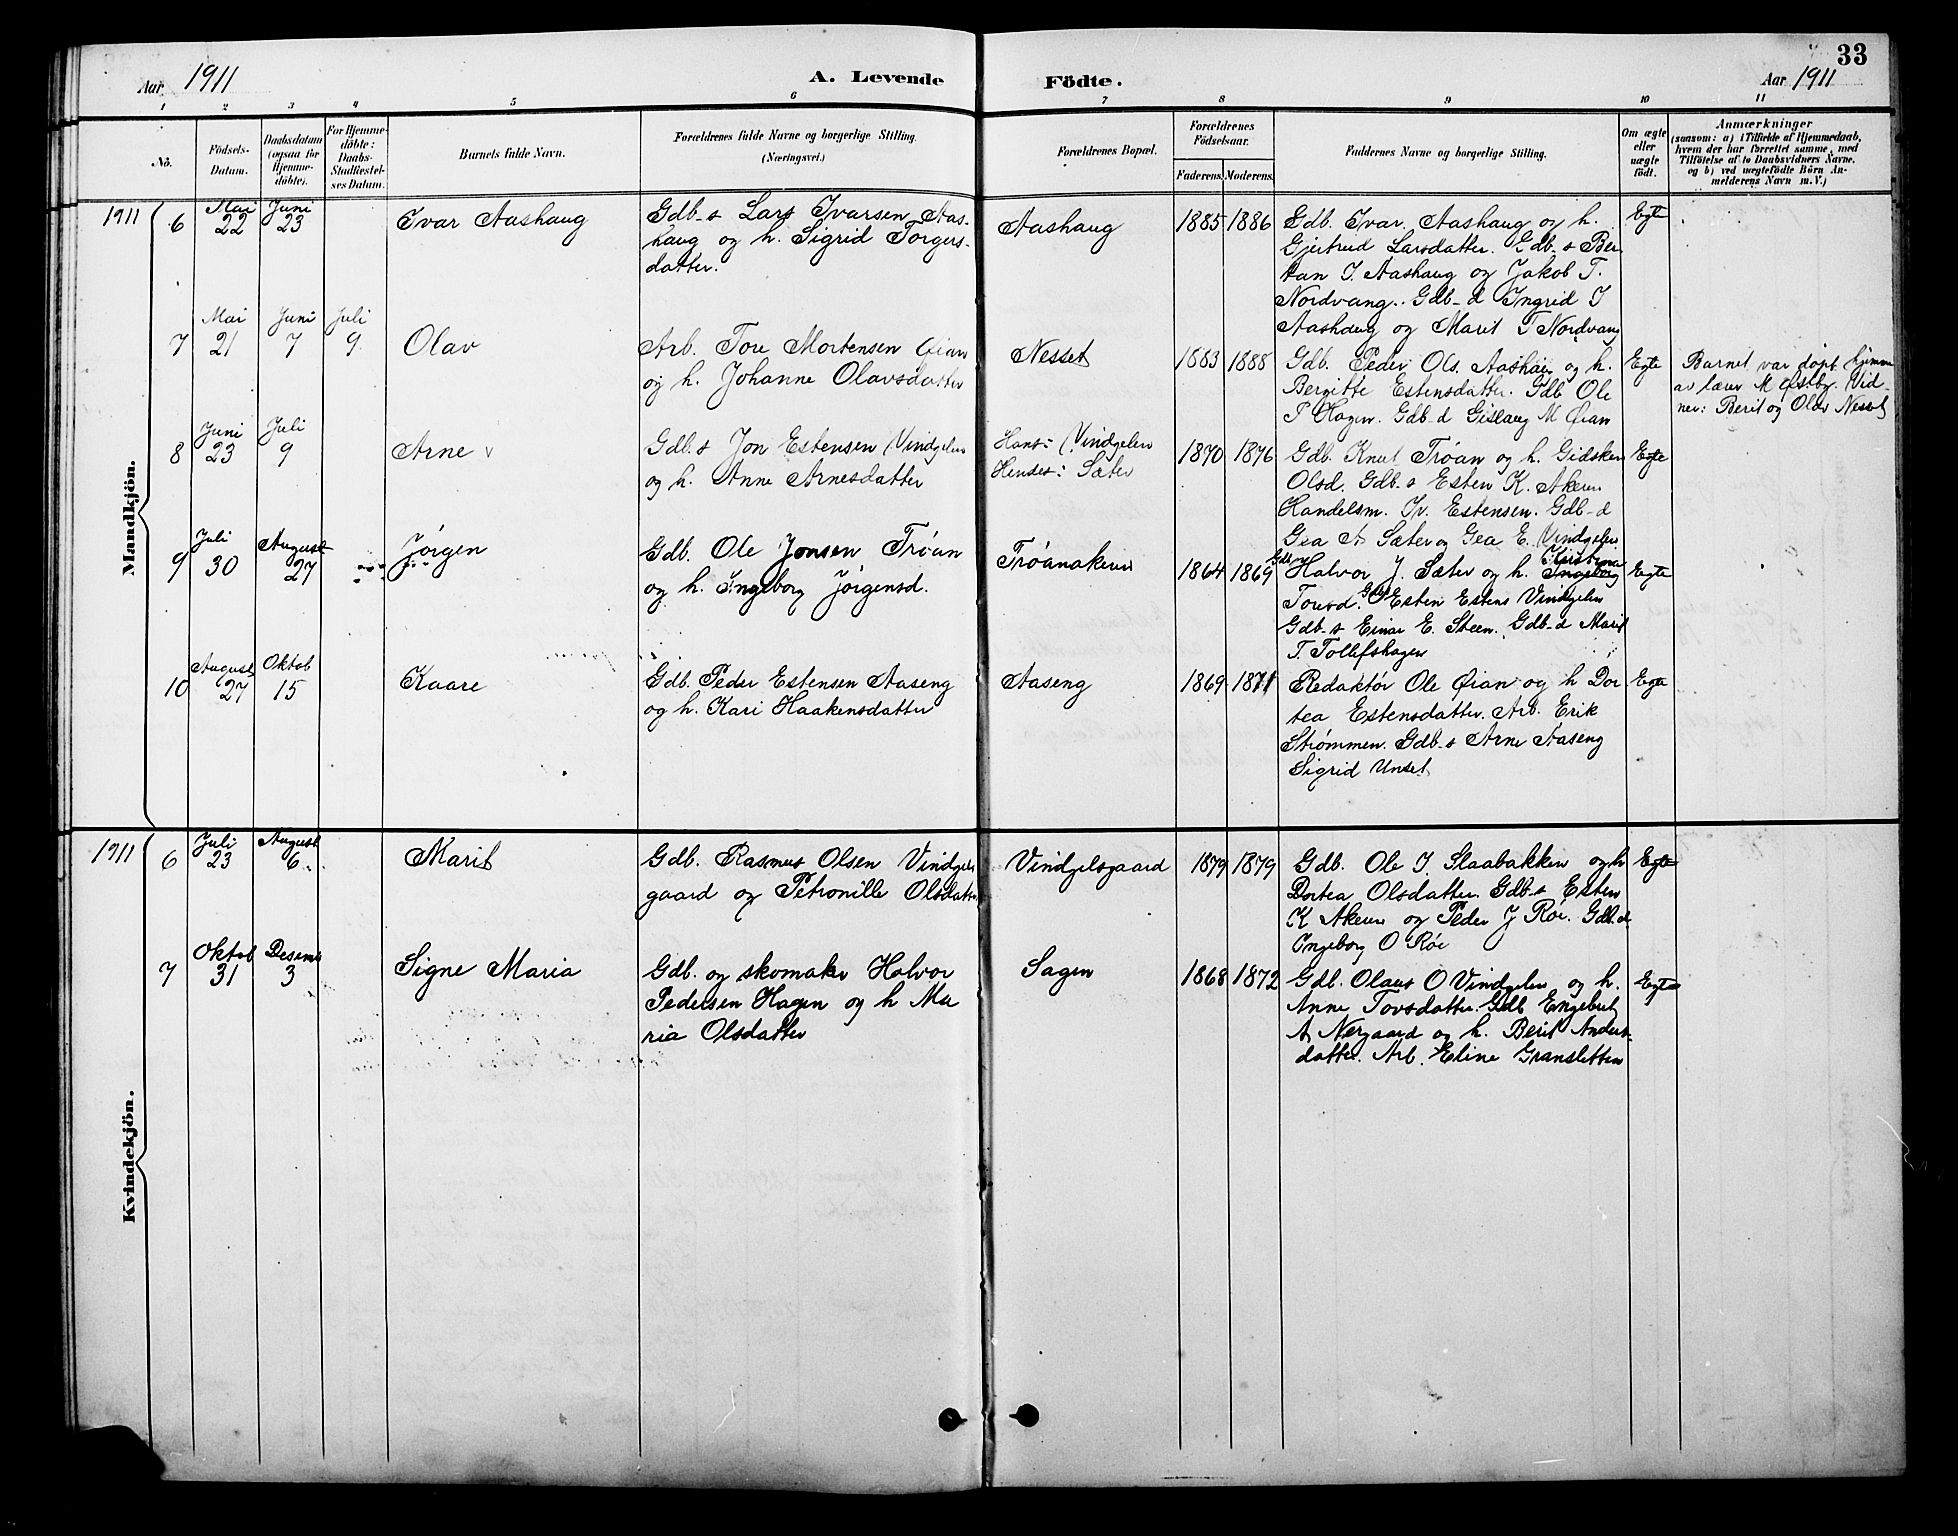 33
Aar 1911
A. Levende Födte.
Aar 1911
1 2 3 4 5 6 7 8 9 10 11
No.
Födsels-
Datum.
Daabsdatum
(ogsaa for
Hjemme-
döbte).
For Hjemme-
döbte:
Daabs-
Stadfæstel-
ses Datum.
Barnets fulde Navn.
Forældrenes fulde Navne og borgerlige Stilling.
(Næringsvei.)
Forældrenes Bopæl.
Forældrenes
Födselsaar.
Faderens. Moderens.
Faddernes Navne og borgerlige Stilling.
Om ægte
eller
uægte
födt.
Anmærkninger
(saasom: a) i Tilfælde af Hjemmedaab,
hvem der har forrettet samme, med
Tilföielse af to Daabsvidners Navne.
og b) ved uægtefödte Börn An-
melderens Navn m. V.)
Mandkjön.
1911
6
Mai
22
Juni
23
Ivar Aashaug
Gdb-s Lars Ivarsen Aas-
haug og h. Sigrid Torgers-
datter.
Aashaug
1885 1886
Gdb. Ivar Aashaug og h.
Gjertrud Larsdatter. Gdb.s Ber
tan I. Aashaug og Jakob T.
Nordvang. Gdb-d Ingrid I
Aashaug og Marit T Nordvang
Egte
7
Mai
21
Juni
7
Juli
9
Olav
Arb. Tore Mortensen Øian
og h. Johanne Olavsdatter
Nesset
1883 1888
Gdb. Peder Ols. Aashaug og h.
Bergitte Estensdatter. Gdb Ole
P Hagen. Gdb-d Gislaug M Øian
Egte
Barnet var døpt hjemme
av lærer M Østby. Vid-
ner: Berit og Olav Nesset
8
Juni
23
Juli
9
Arne
Gdb.s Jon Estensen Vindgelen
og h. Anne Arnesdatter
Hans: Vindgelen
Hendes: Sæter
1870 1876
Gdb. Knut Trøan og h. Gidsken
Olsd. Gdb-s Esten K. Akeren
Handelsm. Iv. Estensen. Gdb-d
Gea A Sæter og Gea E. Vindgelen
Egte
9
Juli
30
August
27
Jørgen
Gdb. Ole Jonsen Trøan
og h. Ingeborg Jørgensd.
Trøanakeren
1864 1869
Gdb. Halvor J. Sæter og h. Kristine
Toresd. Gdb.s Esten Estens Vindgelen
Gdb-s Einar E. Steen. Gdb-d Marit
T. Tollefshagen
Egte
10
August
27
Oktob
15
Kaare
Gdb. Peder Estensen Aaseng
og h. Kari Haakensdatter
Aaseng
1869 1871
Redaktør Ole Øian og h Dor
tea Estensdatter. Arb. Erik
Strømmen. Gdb-s Arne Aaseng
Sigrid Unset
Egte
Kvindekjön.
1911
6
Juli
23
August
6
Marit
Gdb. Rasmus Olsen Vindgels
gaard og Petronille Olsdatter
Vindgelsgaard
1879 1879
Gdb. Ole J. Slaabakken og h
Dortea Olsdatter. Gdb-s Esten
K Akeren og Peder J Røe. Gdb.d
Ingeborg O Røe
Egte
7
Oktob
31
Desemb
3
Signe Maria
Gdb. og skomaker Halvor
Pedersen Hagen og h Ma
ria Olsdatter
Sagen
1868 1872
Gdb. Olaus O Vindgelen og h.
Anne Tovsdatter. Gdb Engebret
A Nergaard og h. Berit Anders-
datter. Arb. Eline Gransletten
Egte